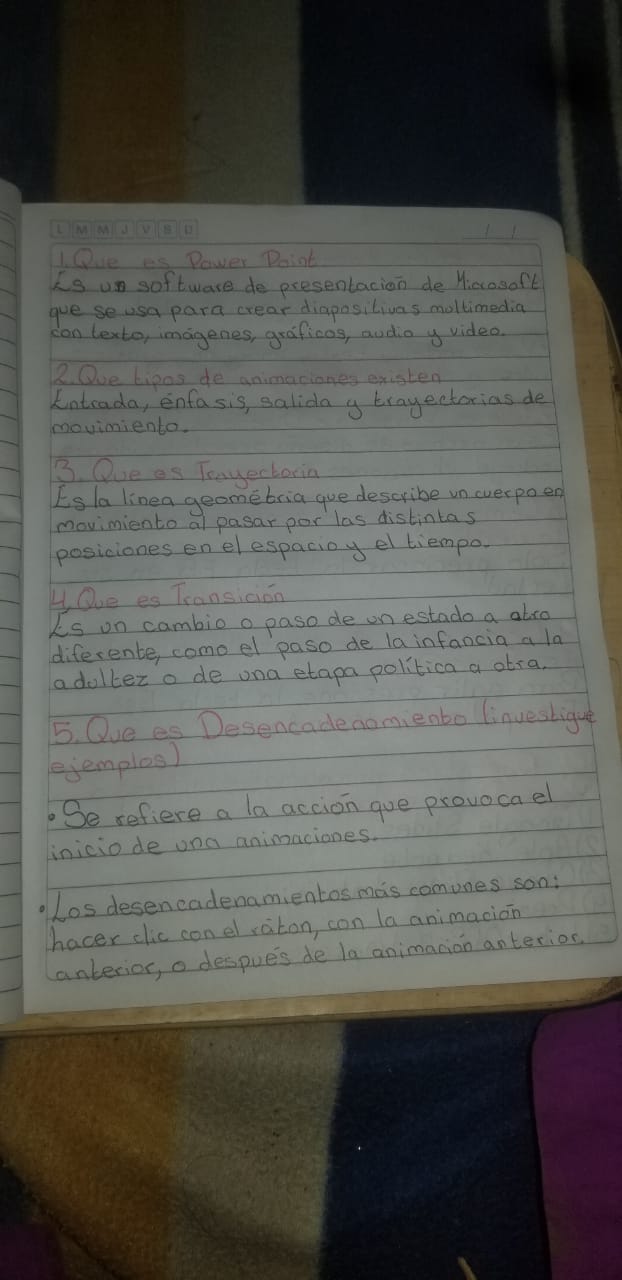 L M M J V S D
/ /
1. Que es Power Point
Es un software de presentación de Microsoft
que se usa para crear diapositivas moltimedia
con texto, imágenes, gráficos, audio y video.
2. Que tipos de animaciones existen
Entrada, énfasis, salida y trayectorias de
movimiento.
3. Que es Trayectoria
Es la línea geométria que describe un cuerpo en
movimiento al pasar por las distintas
posiciones en el espacio y el tiempo.
4. Que es Transición
Es un cambio o paso de un estado a otro
diferente, como el paso de la infancia a la
adultez o de una etapa política a otra.
5. Que es Desencadenamiento (investigue
ejemplos)
• Se refiere a la acción que provoca el
inicio de una animaciones.
• Los desencadenamientos más comunes son:
hacer clic con el ráton, con la animación
anterior, o después de la animación anterior.